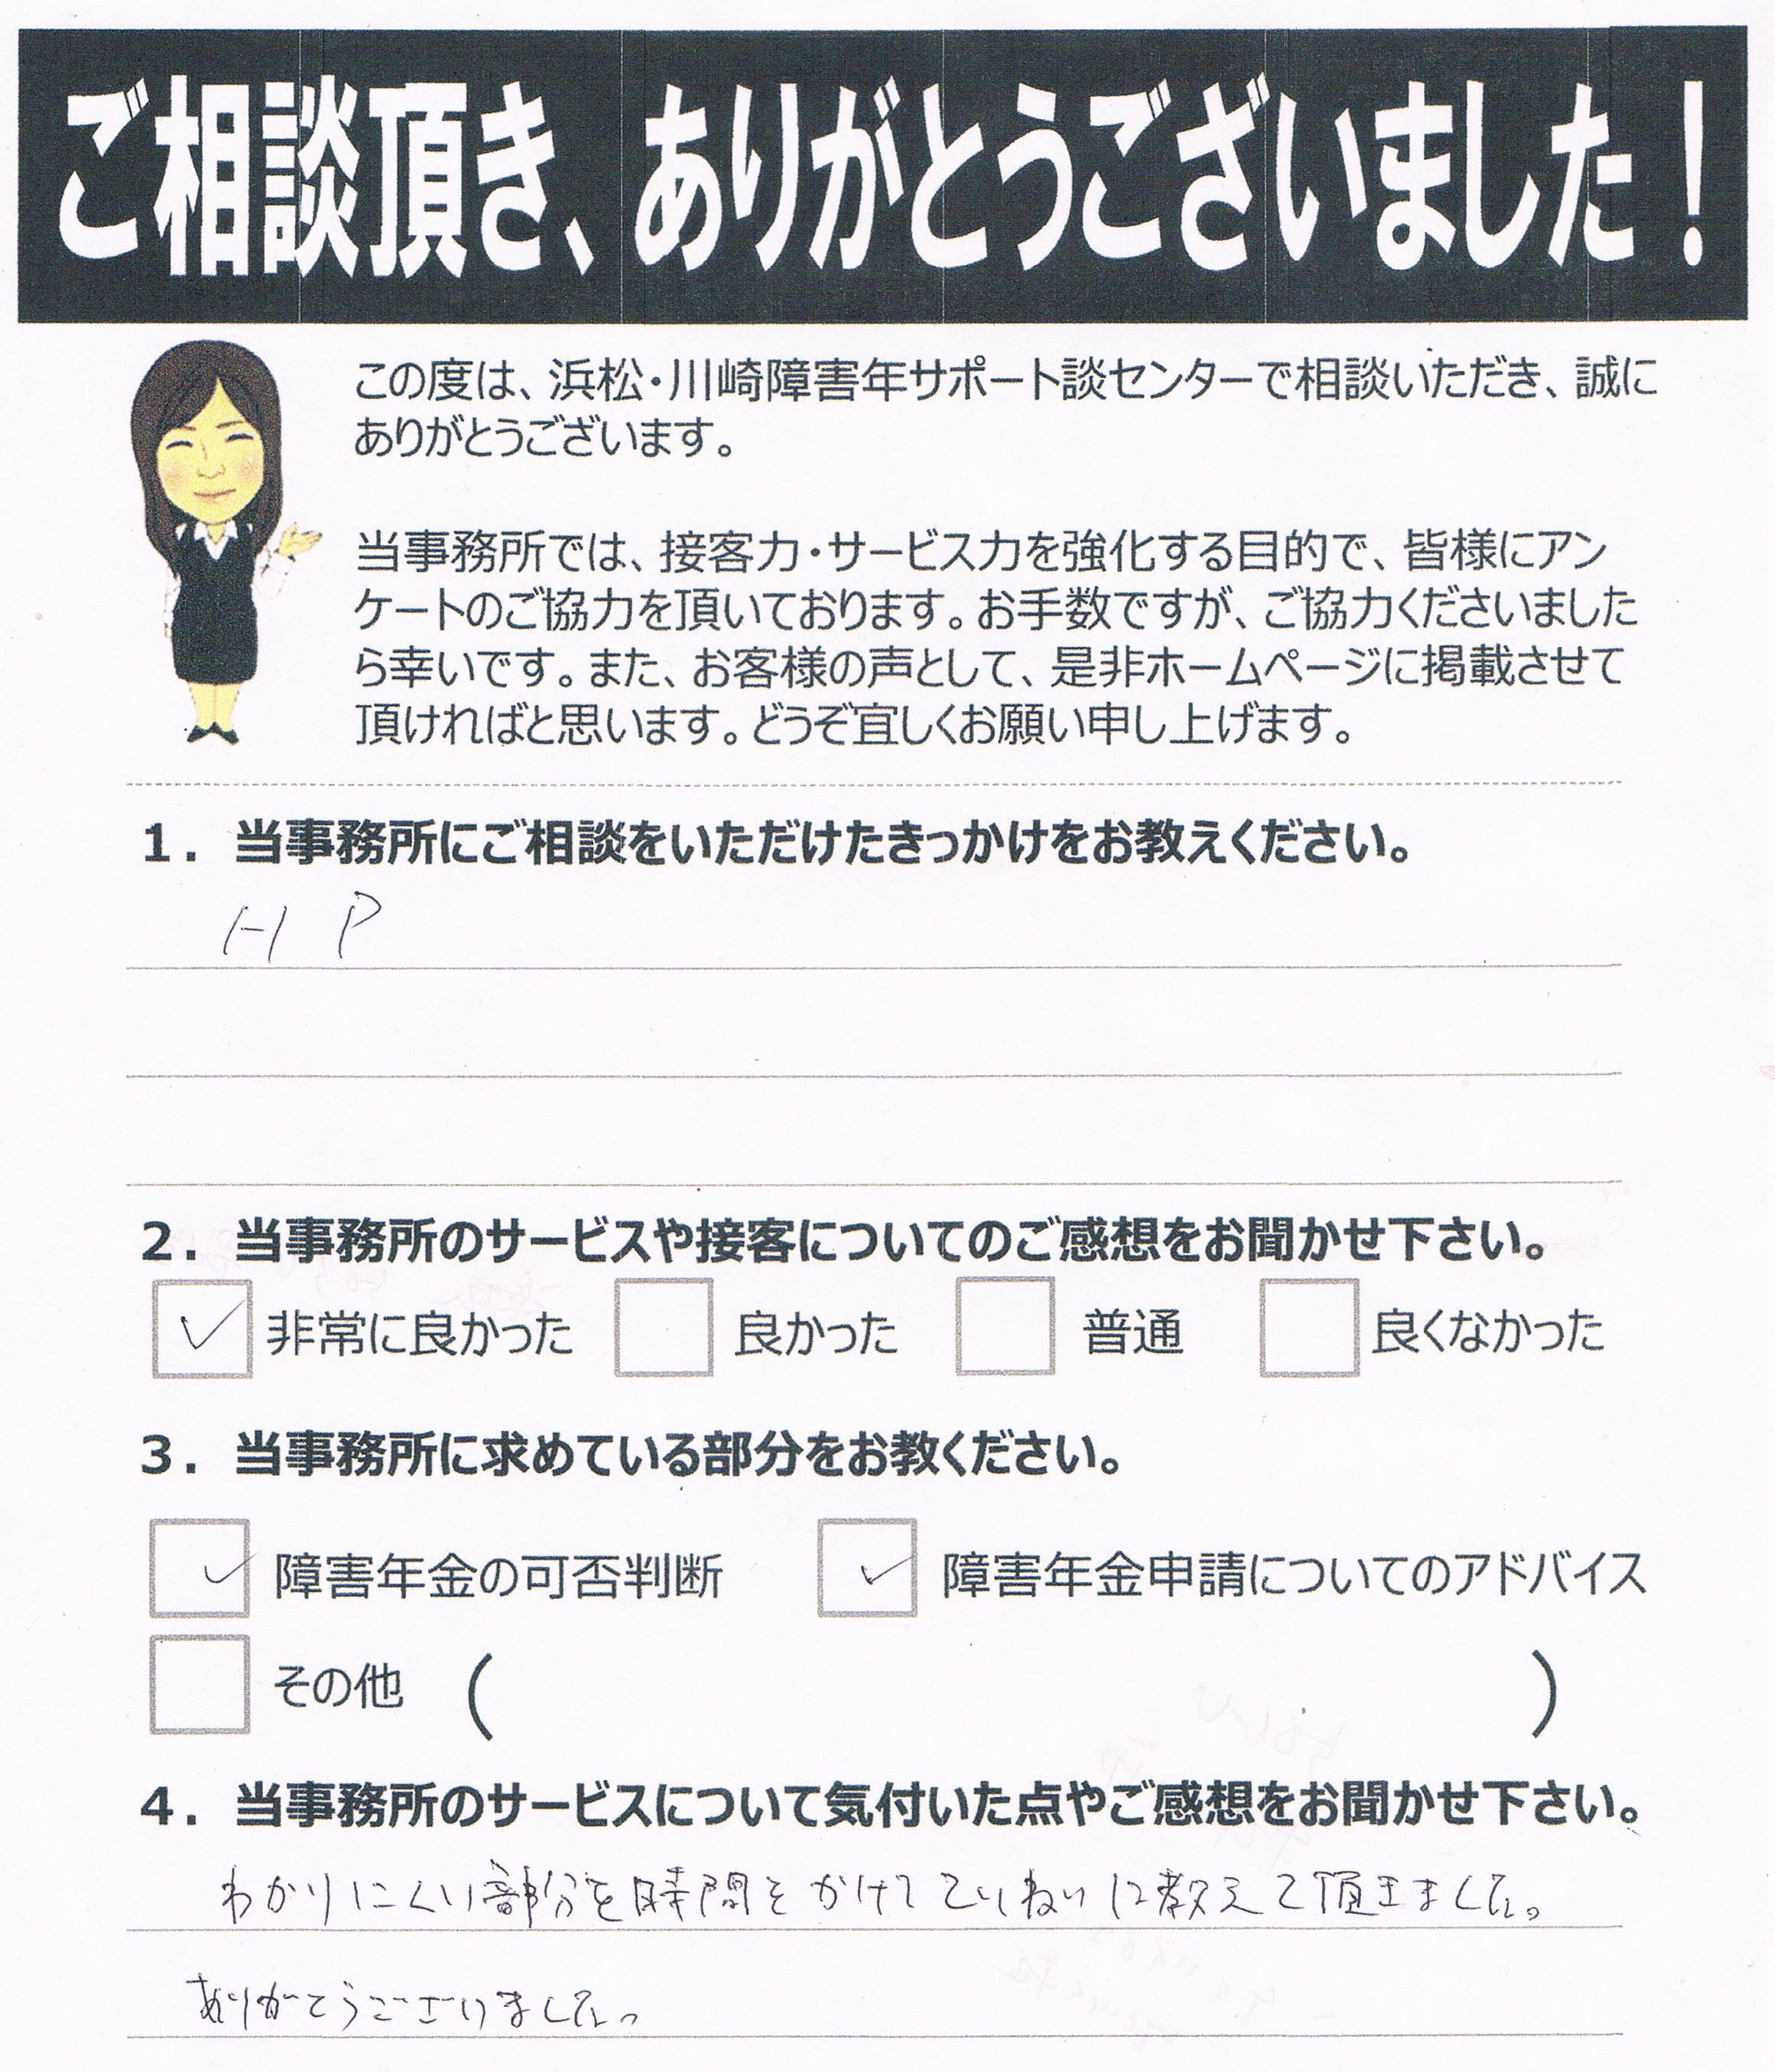 ご相談頂き、ありがとうございました！
この度は、浜松・川崎障害年サポート談センターで相談いただき、誠に
ありがとうございます。
当事務所では、接客力・サービス力を強化する目的で、皆様にアン
ケートのご協力を頂いております。お手数ですが、ご協力くださいました
ら幸いです。また、お客様の声として、是非ホームページに掲載させて
頂ければと思います。どうぞ宜しくお願い申し上げます。
1. 当事務所にご相談をいただけたきっかけをお教えください。
HP
2. 当事務所のサービスや接客についてのご感想をお聞かせ下さい。
非常に良かった 良かった 普通 良くなかった
3. 当事務所に求めている部分をお教ください。
障害年金の可否判断 障害年金申請についてのアドバイス
その他 ( )
4. 当事務所のサービスについて気付いた点やご感想をお聞かせ下さい。
わかりにくい部分を時間をかけてていねいに教えて頂きました。
ありがとうございました。